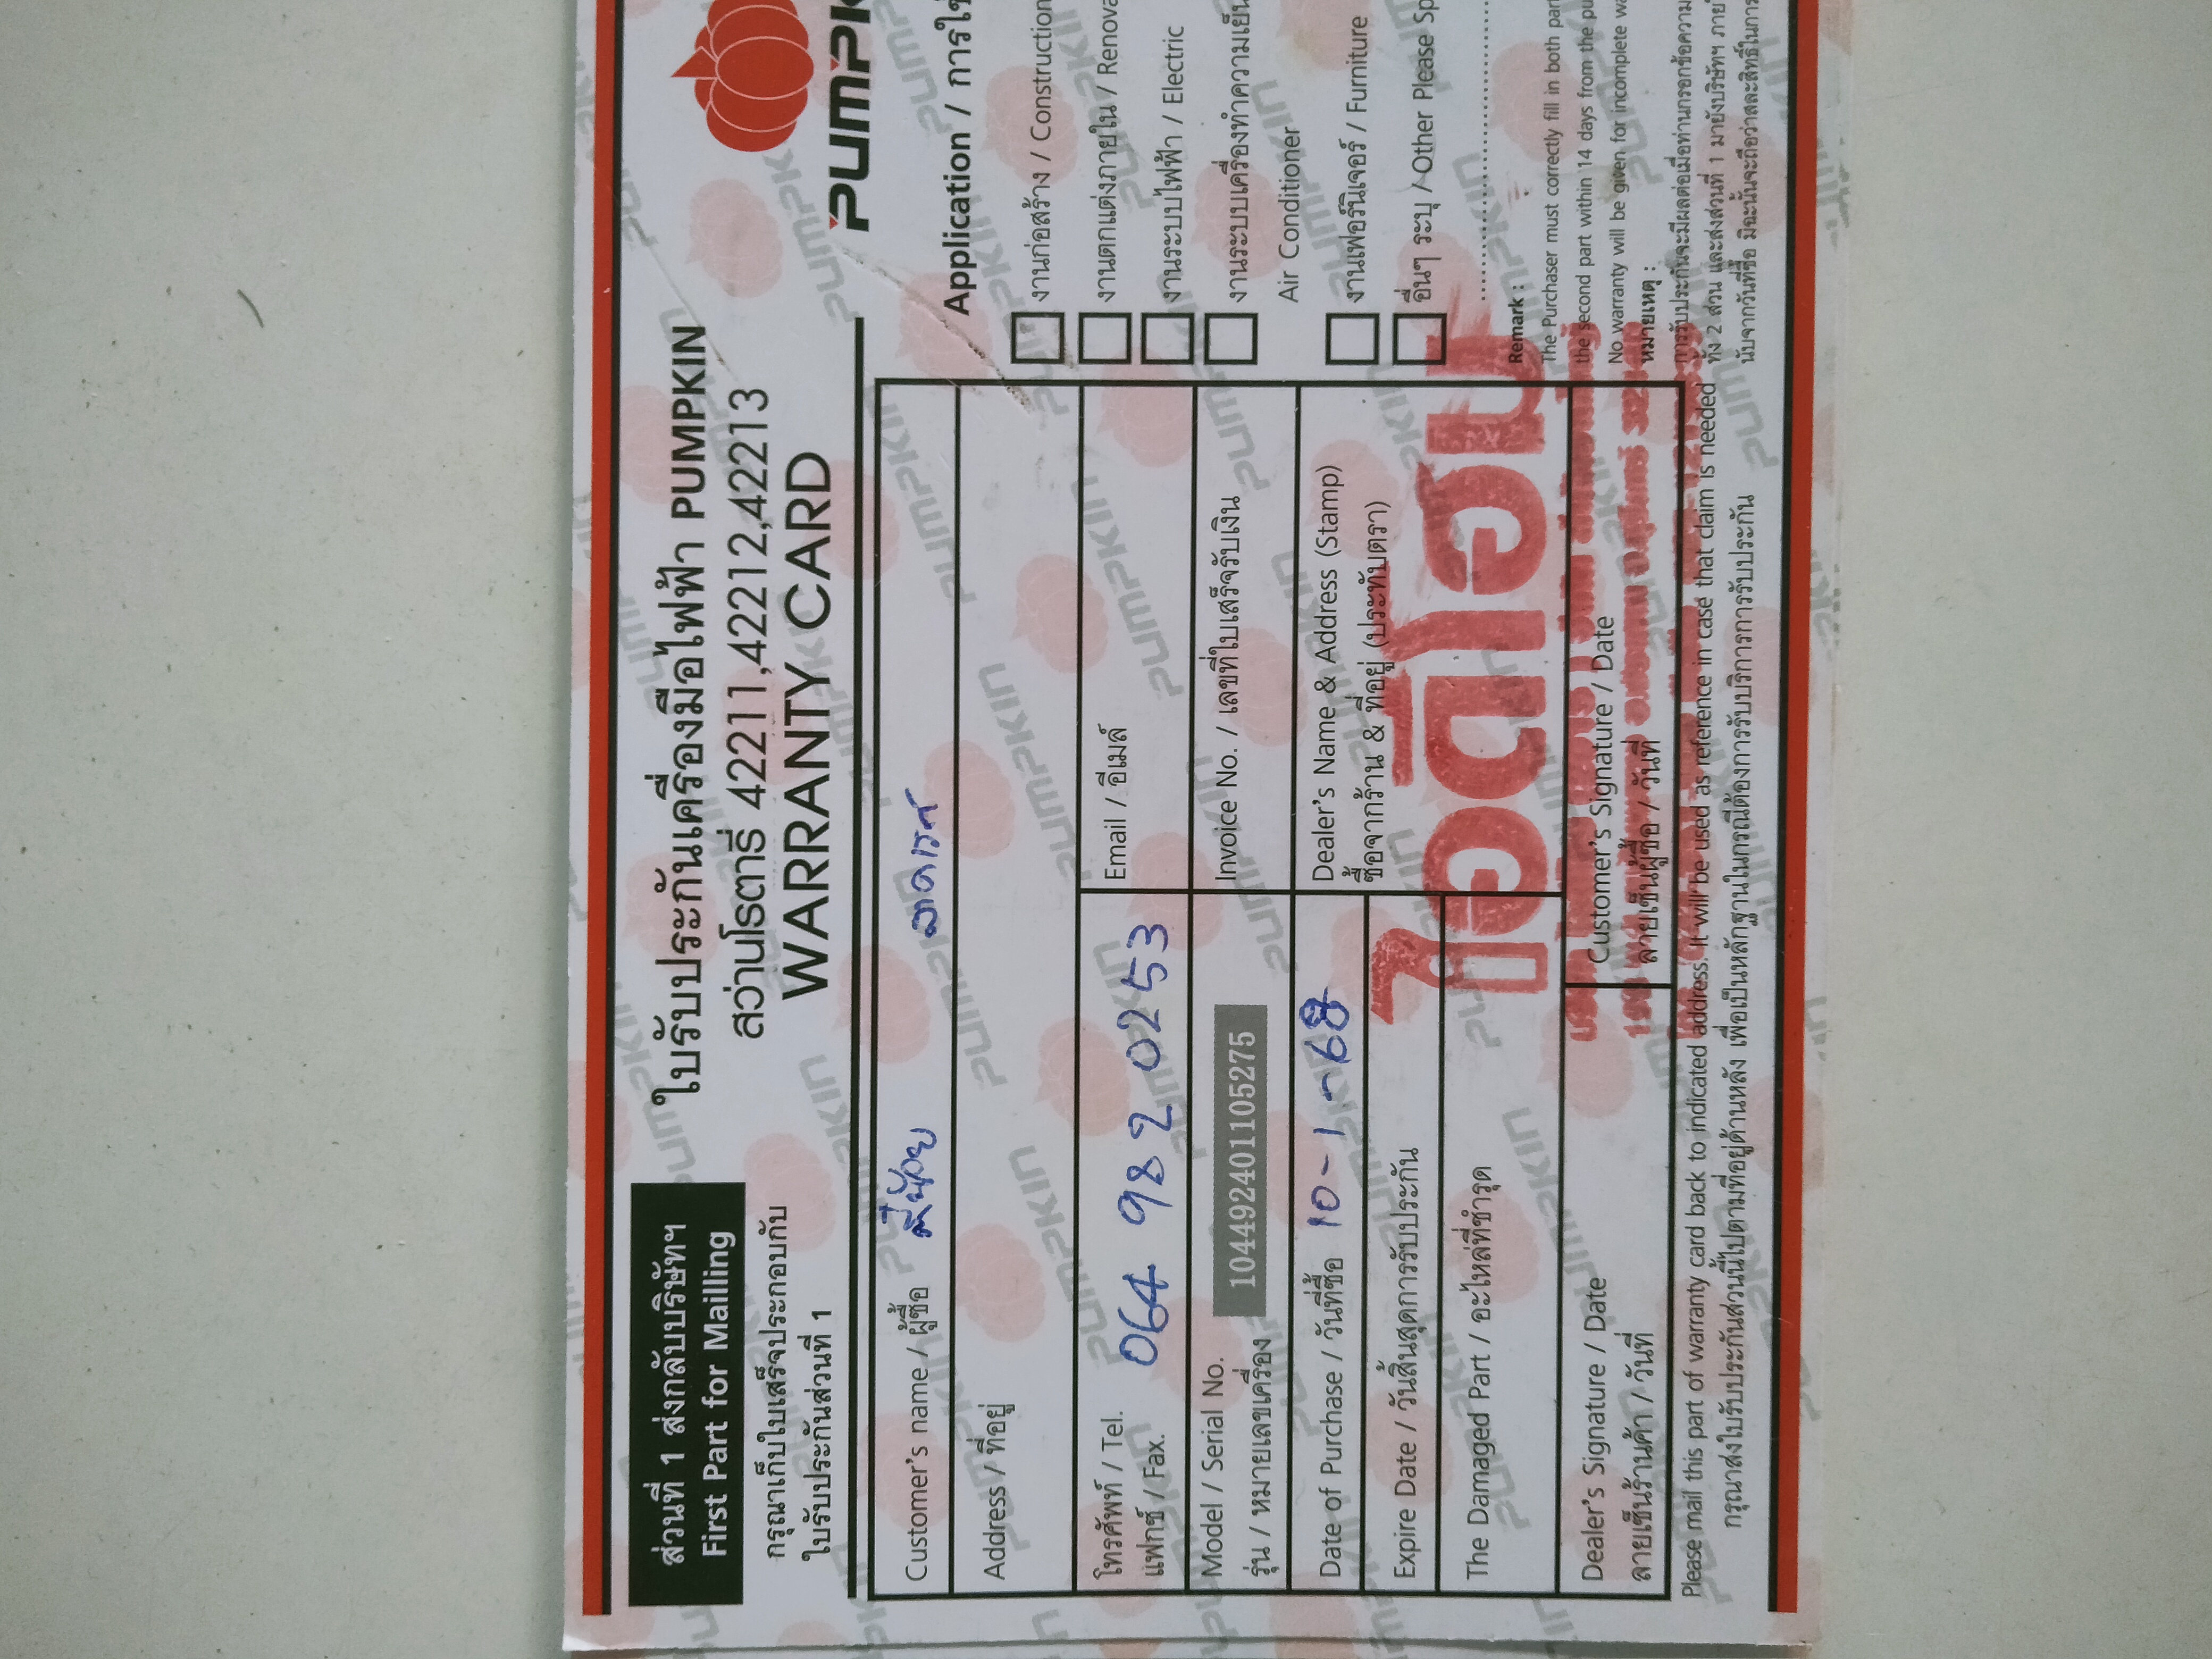 ส่วนที่ 1 ส่งกลับบริษัทฯ
First Part for Mailling
กรุณาเก็บใบเสร็จประกอบกับ
ใบรับประกันส่วนที่ 1
ใบรับประกันเครื่องมือไฟฟ้า PUMPKIN
สว่านโรตารี่ 42211,42212,42213
WARRANTY CARD
PUMPK
Customer's name / ผู้ซื้อ
Address / ที่อยู่
โทรศัพท์ / Tel. 064 982 0253
แฟกซ์ / Fax.
Email / อีเมล์
Model / Serial No.
รุ่น / หมายเลขเครื่อง 1044924011105275
Invoice No. / เลขที่ใบเสร็จรับเงิน
Date of Purchase / วันที่ซื้อ 10-1-68
Dealer's Name & Address (Stamp)
ซื้อจากร้าน & ที่อยู่ (ประทับตรา)
ไอดีโฮม
Expire Date / วันสิ้นสุดการรับประกัน
The Damaged Part / อะไหล่ที่ชำรุด
Dealer's Signature / Date
ลายเซ็นร้านค้า / วันที่
Customer's Signature / Date
ลายเซ็นผู้ซื้อ / วันที่
Please mail this part of warranty card back to indicated address. It will be used as reference in case that claim is needed
กรุณาส่งใบรับประกันส่วนนี้ไปตามที่อยู่ด้านหลัง เพื่อเป็นหลักฐานในกรณีต้องการรับบริการการรับประกัน
Application / การใช้
งานก่อสร้าง / Construction
งานตกแต่งภายใน / Renova
งานระบบไฟฟ้า / Electric
งานระบบเครื่องทำความเย็น
Air Conditioner
งานเฟอร์นิเจอร์ / Furniture
อื่นๆ ระบุ / Other Please Sp
Remark :
The Purchaser must correctly fill in both par
the second part within 14 days from the pu
No warranty will be given for incomplete wa
หมายเหตุ :
การรับประกันจะมีผลต่อเมื่อท่านกรอกข้อความ
ทั้ง 2 ส่วน และส่งส่วนที่ 1 มายังบริษัทฯ ภายใ
นับจากวันที่ซื้อ มิฉะนั้นจะถือว่าสละสิทธิ์ในการ